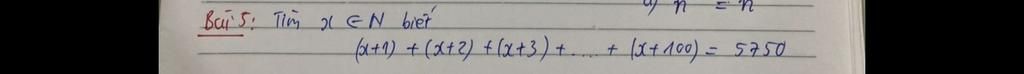 u) n = n
Bài 5: Tìm x ∈ N biết
(x+1) + (x+2) + (x+3) + .... + (x+100) = 5750